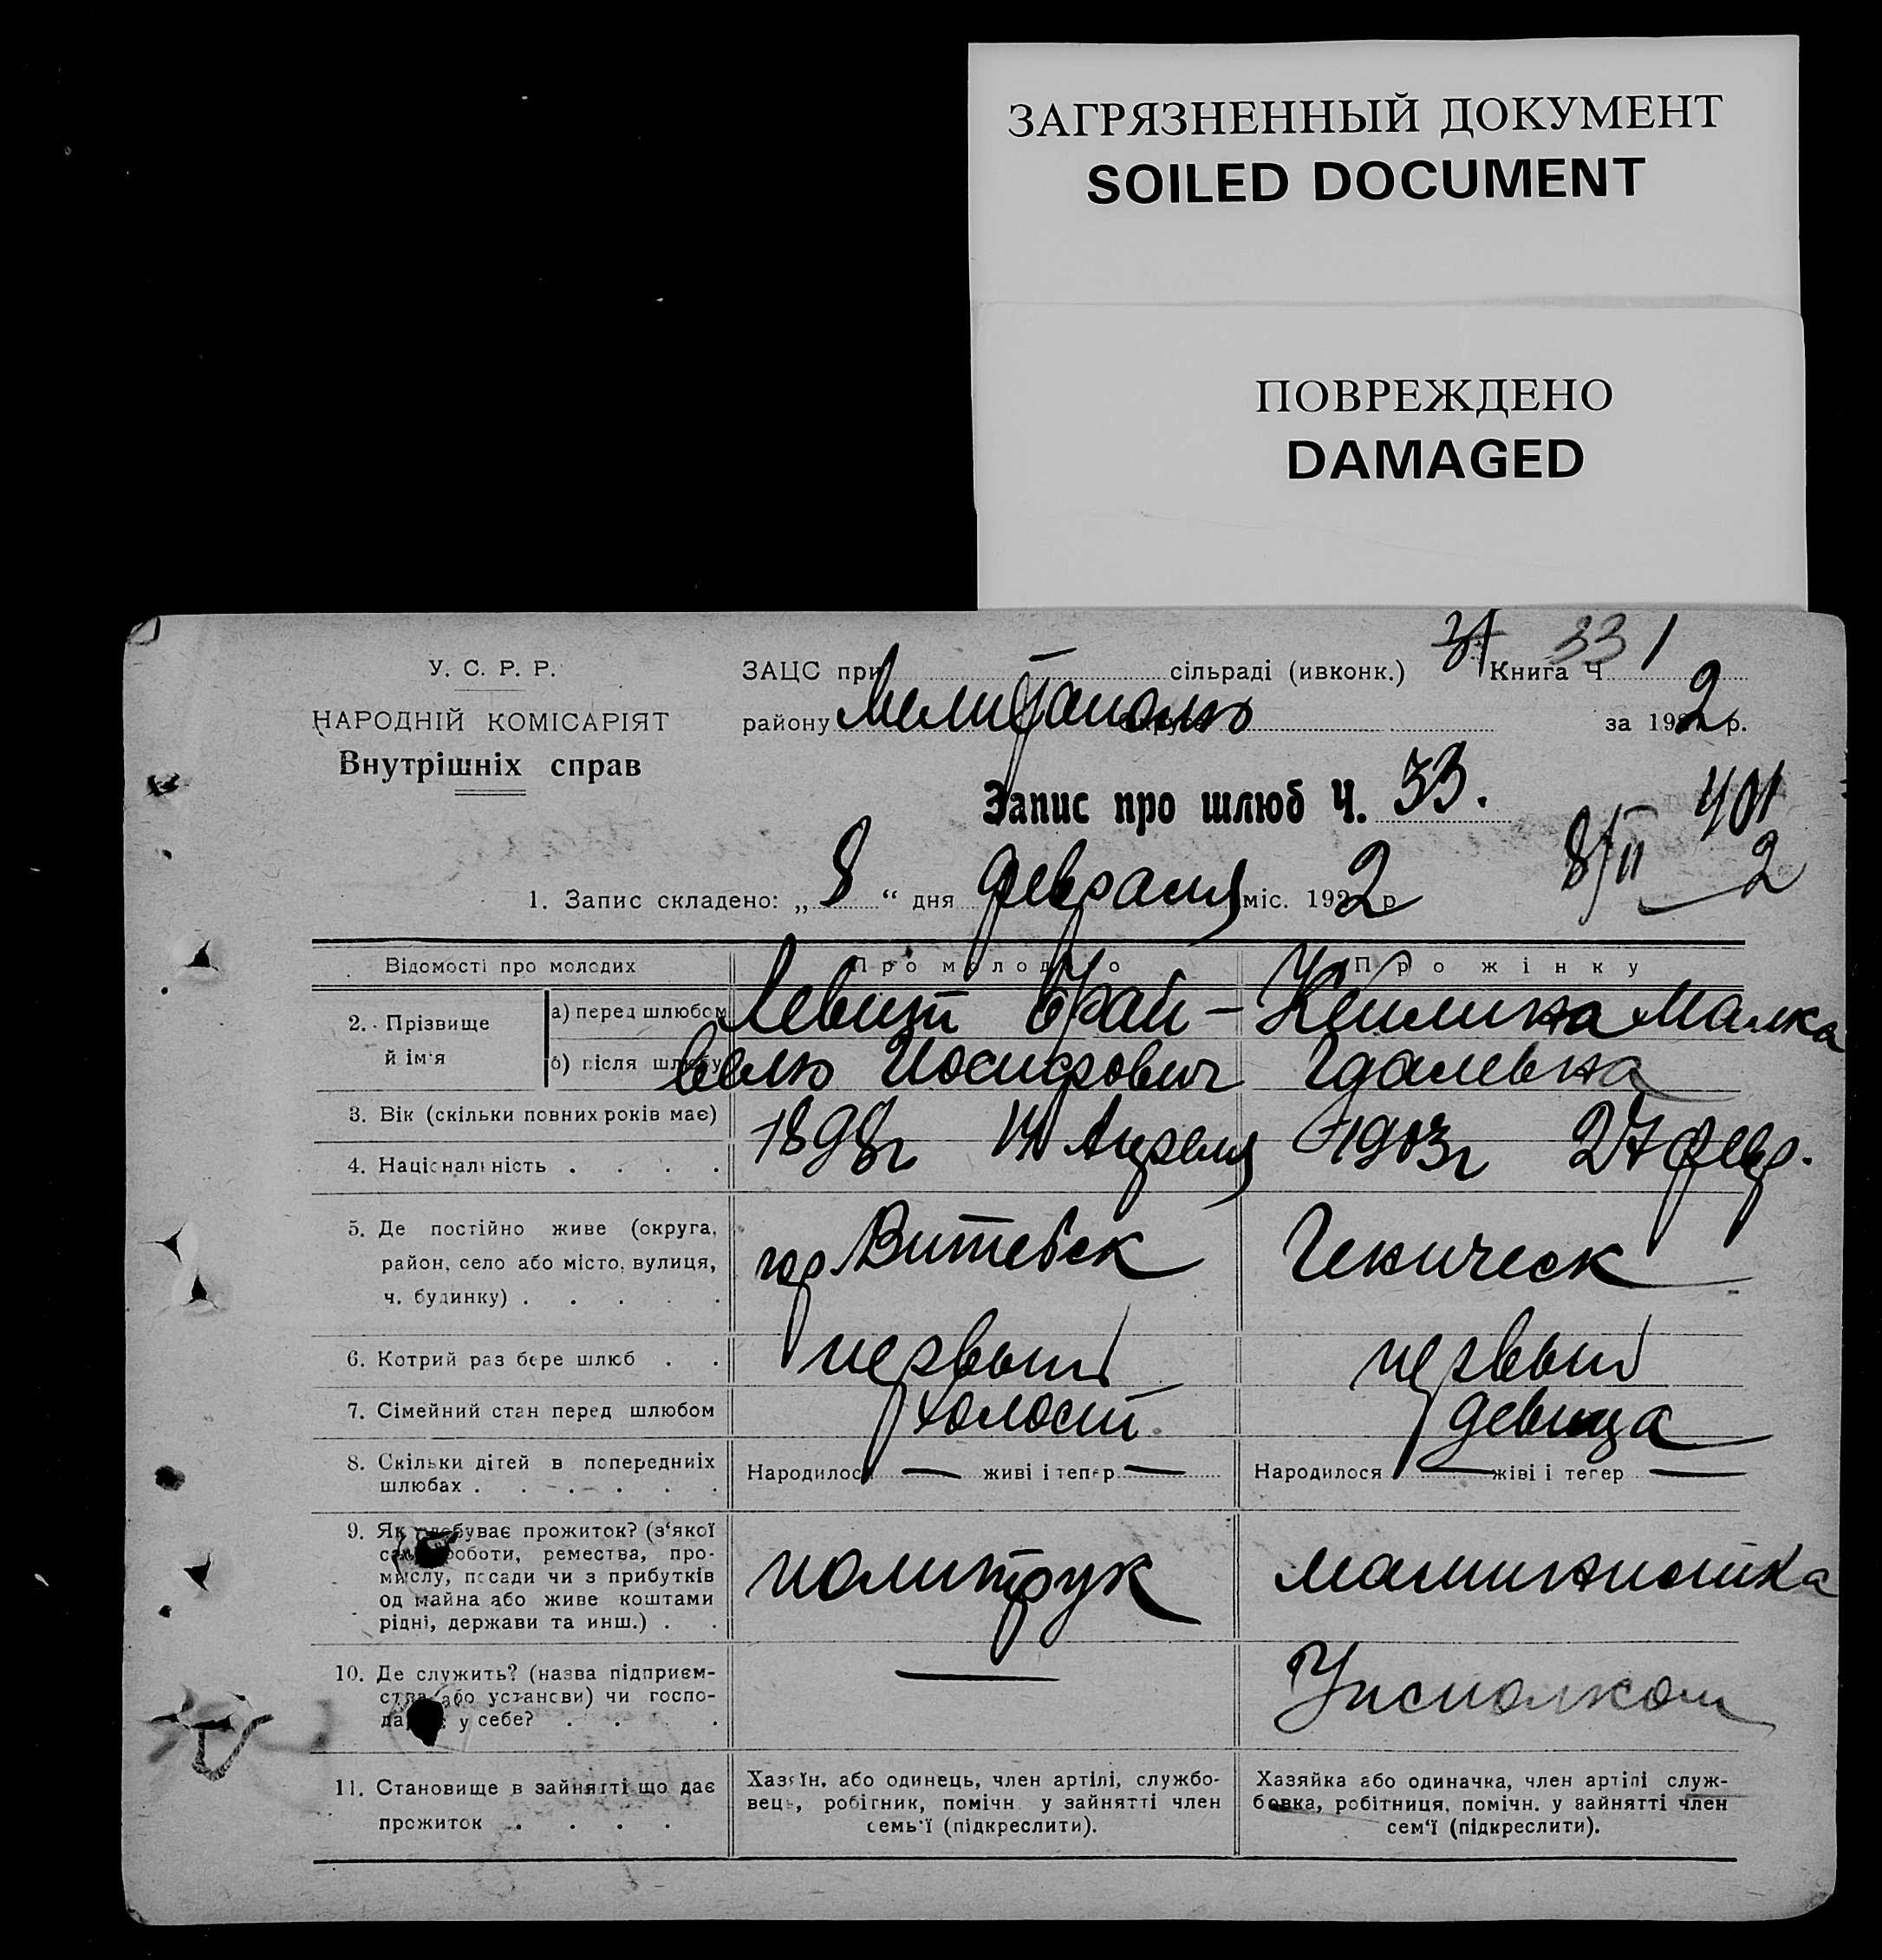 ЗАГРЯЗНЕННЫЙ ДОКУМЕНТ
SOILED DOCUMENT
ПОВРЕЖДЕНО
DAMAGED
У. С. Р. Р.
НАРОДНІЙ КОМІСАРІЯТ
Внутрішніх справ
ЗАЦС при сільраді (ивконк.) 31 Книга Ч. 33 1
району Мелитополь за 1922 р.
Запис про шлюб Ч. 33.
401
8/II 2
1. Запис складено: „ 8 “ дня февраля міс. 1922 р
Відомості про молодих Про молодого Про жінку
2. Прізвище й ім'я а) перед шлюбом Левит Край- Кейлина Малка
б) після шлюбу Иосифович Гдалевна
3. Вік (скільки повних років має) 1898г 14 Апреля 1903г 27 февр.
4. Національність . . . .
5. Де постійно живе (округа,
район, село або місто, вулиця, гор Витебск Геническ
ч. будинку) . . . . .
6. Котрий раз бере шлюб . . первый первый
7. Сімейний стан перед шлюбом холост. девица
8. Скільки дітей в попередниіх
шлюбах . . . . . . Народилося — живі і тепер — Народилося — жіві і тепер —
9. Як здобуває прожиток? (з'якої
саме роботи, ремества, про-
мислу, посади чи з прибутків политрук машинистка
од майна або живе коштами
рідні, держави та инш.) . .
10. Де служить? (назва підприєм-
ства або устансви) чи госпо- — Уисполком
дарює у себе? . . . .
11. Становище в зайнятті що дає
прожиток . . . .
Хазяїн, або одинець, член артілі, службо-
вець, робітник, помічн у зайнятті член
семь'ї (підкреслити).
Хазяйка або одиначка, член артілі служ-
бовка, робітниця, помічн. у зайнятті член
сем'ї (підкреслити).